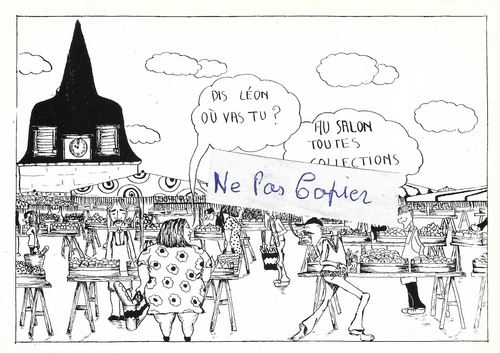 DIS LÉON
OÙ VAS TU ?
AU SALON
TOUTES
COLLECTIONS
Ne Pas Copier